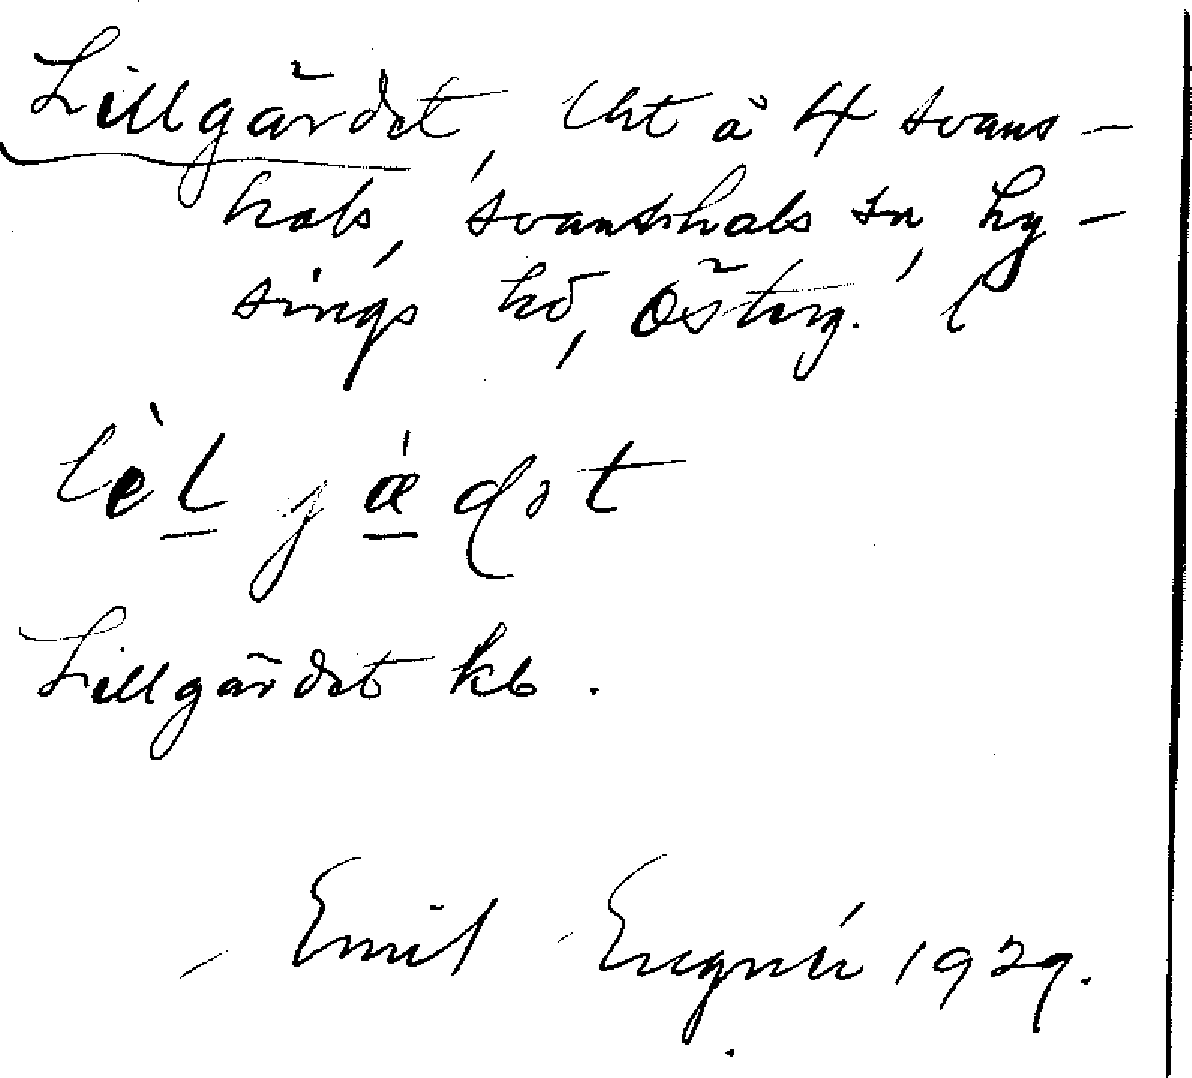 Lillgärdet, lht å 4 svans-
hals, svanshals sn, Hy-
sings hd, Österg. l
lèlgædət
Lillgärdet kb.
Emil Engnér 1929.